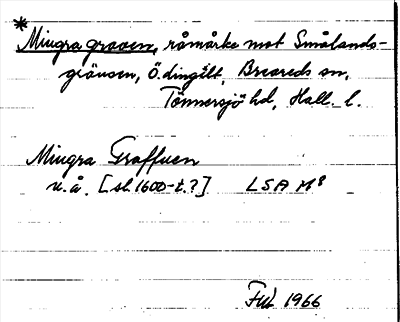 * Mingra graven, råmärke mot Smålands-
gränsen, Ö. dingilt, Breareds sn,
Tönnersjö hd, Hall. l.
Mingra Graffuen
u.å. [sl. 1600-t.?] LSA M8
1966